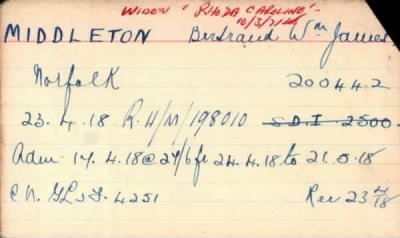 WIDOW "RHODA CAROLINE"
10/3/71
MIDDLETON Bertrand Wm James
Norfolk 200442
23.4.18 R.H/M/198010 S.D.I. 2500.
Adm. 17.4.18 @ 27/6 fr 24.4.18 to 21.5.18
C.N. 4251 Rec 23/4/18